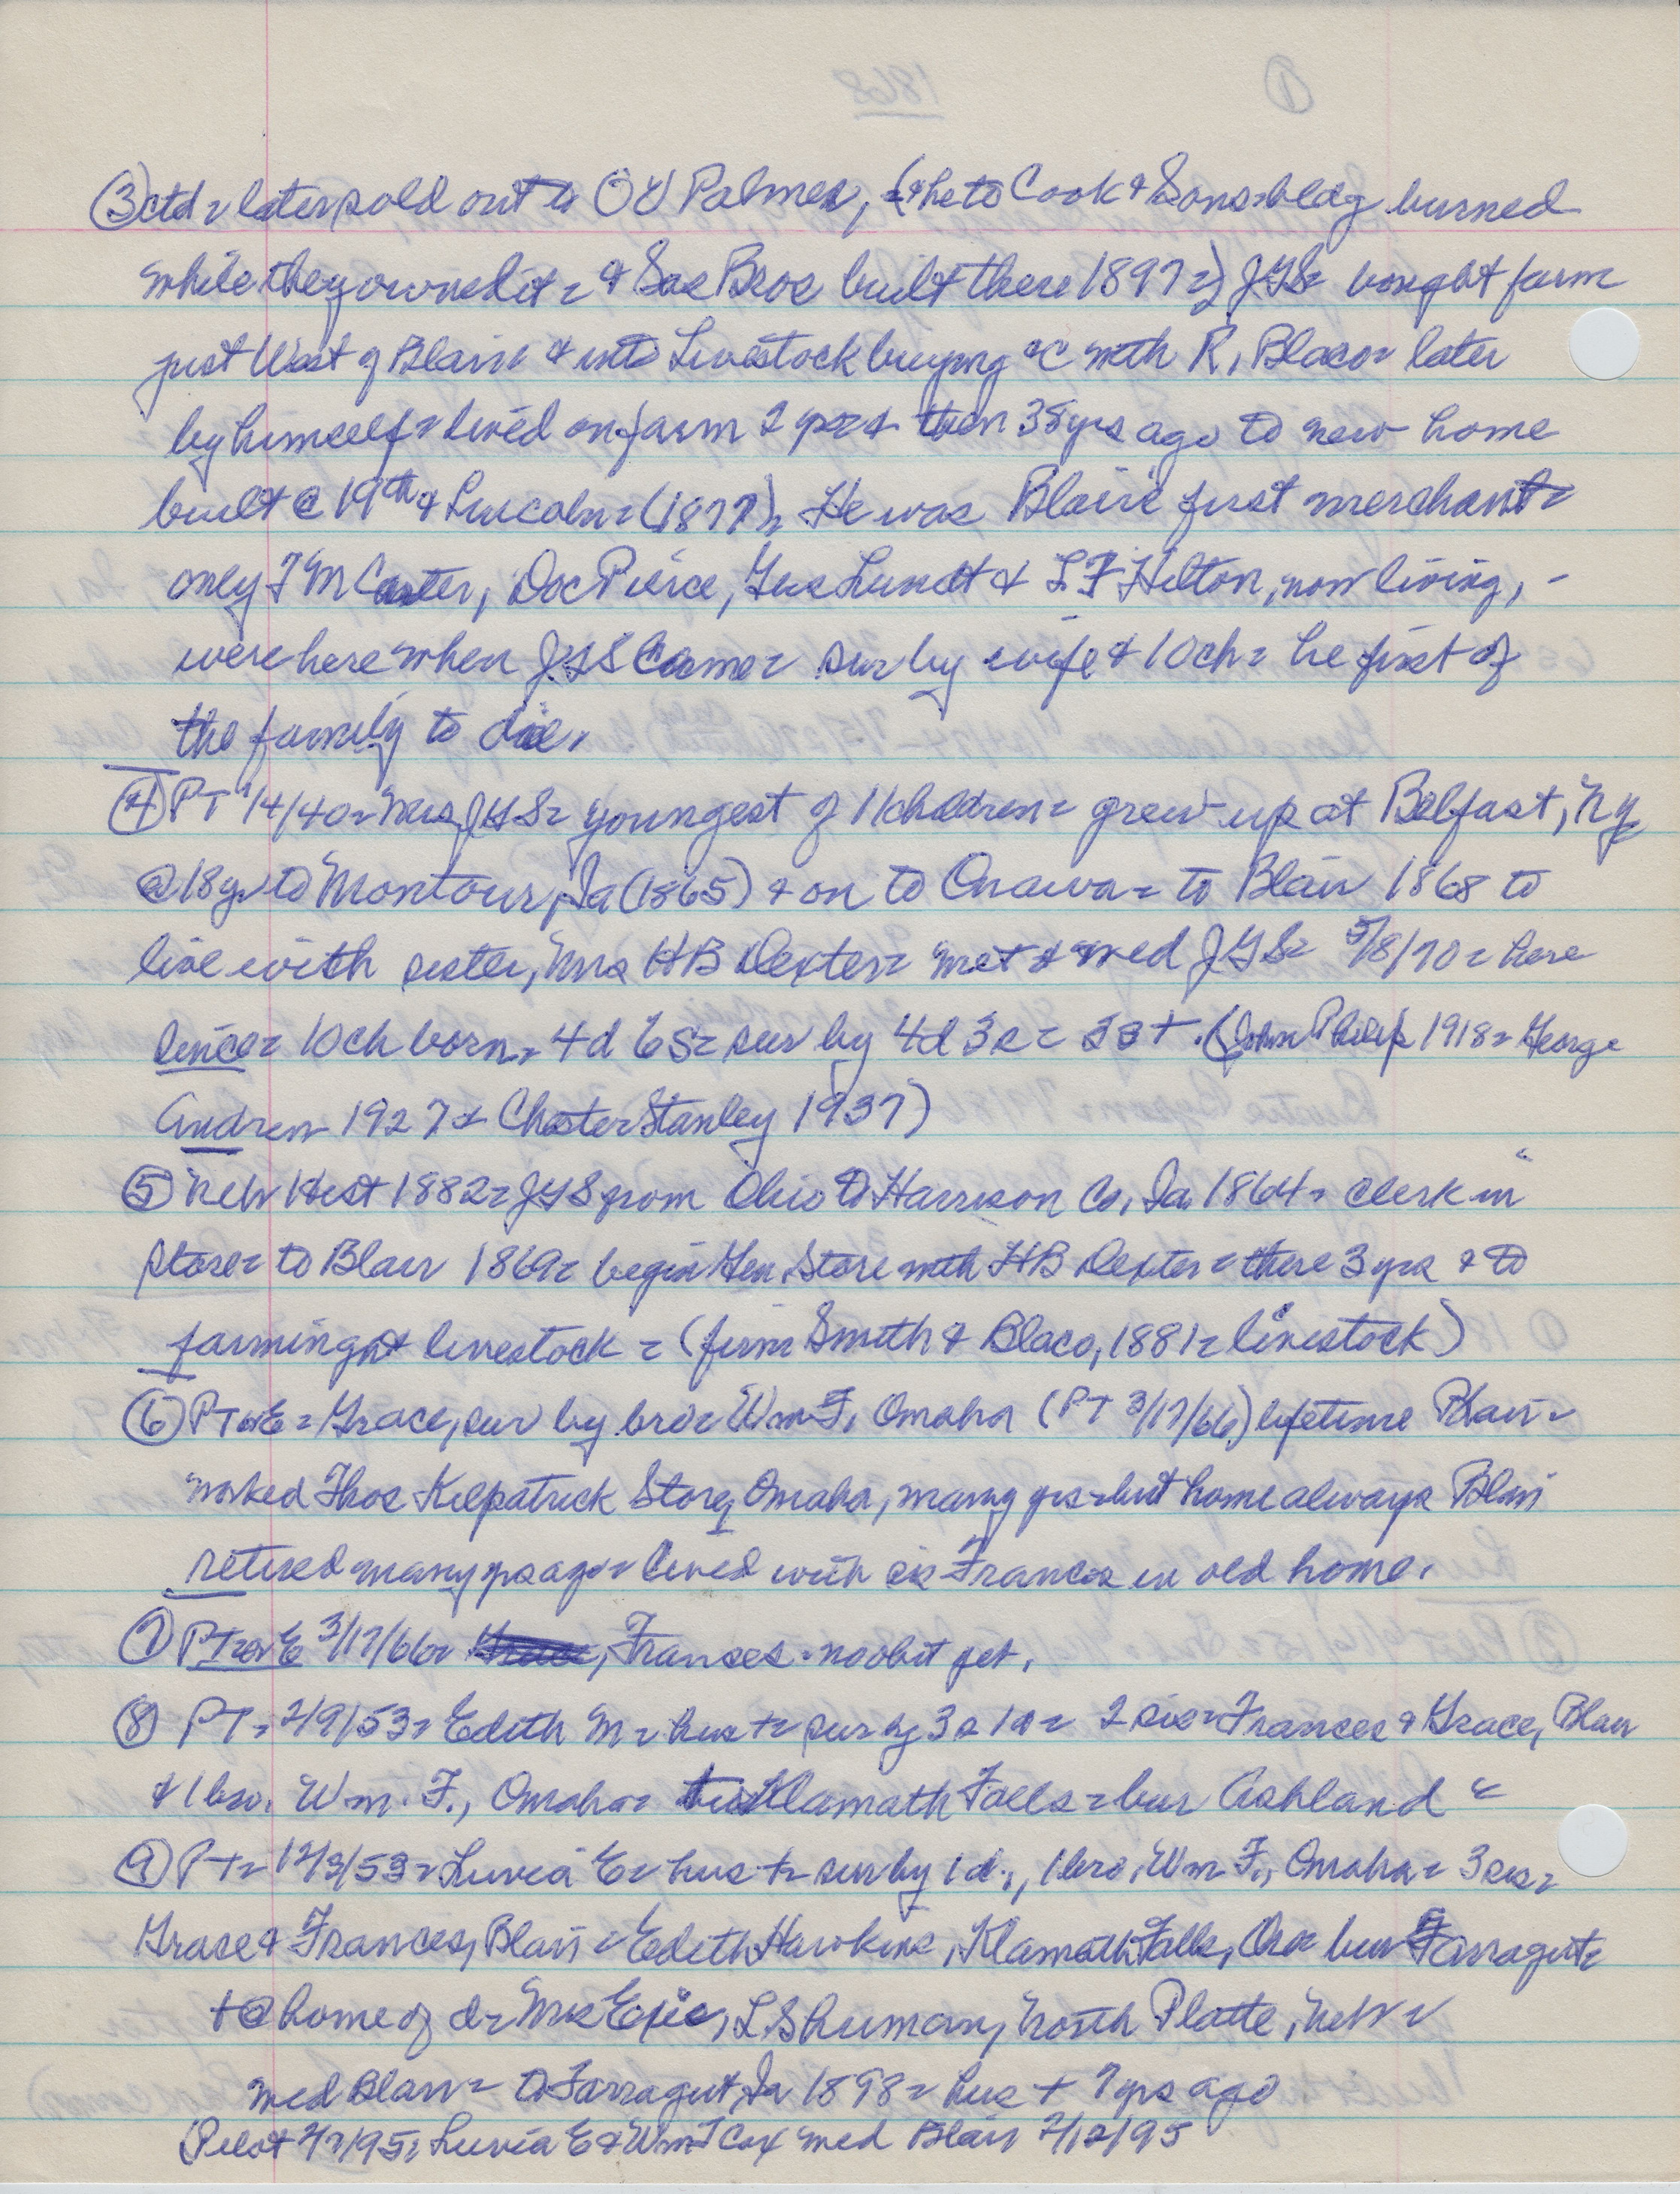 ③ctd = later sold out to OV Palmer, (& he to Cook & Sons = bldg burned
while they owned it = & Sas Bros built there 1897=) JYS= bought farm
just West of Blair & into Livestock buying &c with R, Blaco= later
by himself = lived on farm 2 yrs & then 38 yrs ago to new home
built @ 19th & Lincoln = (1877), He was Blair's first merchant=
only F M Caster, Doc Pierce, Gus Lundt & L F Hilton, now living, -
were here when JYS Came = sur by wife & 10ch = he first of
the family to die.
④ PT 1/4/40= Mrs JYS= youngest of 11 children= grew up at Belfast, NY
@ 18 y= to Montour, Ia (1865) & on to Onawa = to Blair 1868 to
live with sister, Mrs HB Dexter= met & med JYS= 5/8/70= here
since= 10ch born= 4d 6s= sur by 4d 3s = 3s+. (John Philip 1918= George
Andrew 1927 & Chester Stanley 1937)
⑤ Neb Hist 1882= JYS from Ohio to Harrison Co, Ia 1864= clerk in "
store= to Blair 1869= begin Gen. Store with HB Dexter = there 3 yrs & to
farming & livestock = (firm Smith & Blaco, 1881= livestock)
⑥ PT & E = Grace, sur by bro= Wm F, Omaha (PT 3/17/66) lifetime Blair =
worked Thos Kilpatrick Store, Omaha, many yrs = but home always Blair
retired many yrs ago = lived with sis Frances in old home.
⑦ PT & E 3/17/66= Frances = no obit yet.
⑧ PT= 2/9/53= Edith M = hus += sur by 3s 1d = 2 sis= Frances & Grace, Blair
& 1 bro. Wm. F., Omaha= Klamath Falls = bur Ashland "
⑨ PT= 12/3/53= Luvia E= hus += sur by 1d., 1 bro, Wm F., Omaha= 3 sis=
Grace & Frances, Blair = Edith Hawkins, Klamath Falls, Ore= bur Farragut=
+@ home of d= Mrs L Shuman, North Platte, Neb =
med Blair = to Farragut, Ia 1898= hus + 7 yrs ago
Pilot 2/ /95= Luvia E & Wm T Cox med Blair 2/12/95